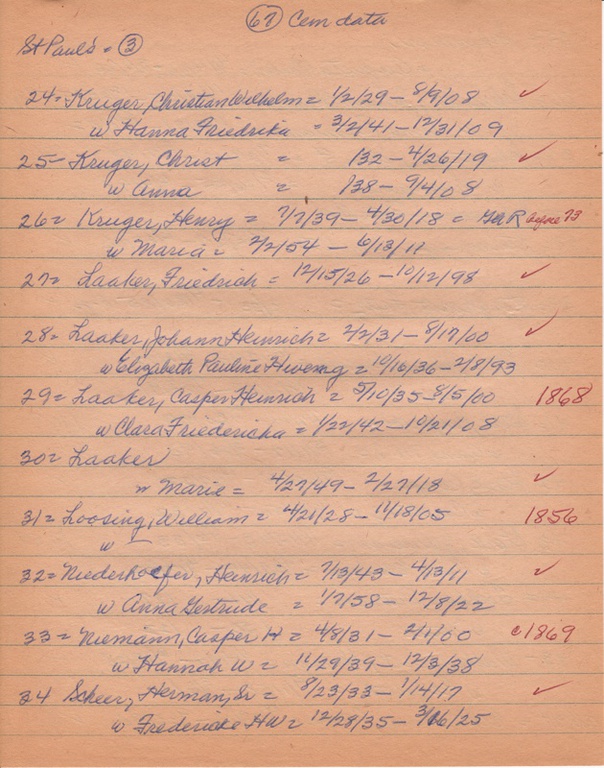 67 Cem data
St Paul's = 3
24 = Kruger, Christian Wilhelm = 1/2/29 - 8/9/08 ✓
w Hanna Friedrika = 3/2/41 - 12/31/09
25 = Kruger, Christ = 1/32 - 4/26/19 ✓
w Anna = 1/38 - 9/4/08
26 = Kruger, Henry = 7/7/39 - 4/30/18 = GAR before 73
w Maria = 2/2/54 - 6/13/11
27 = Laaker, Friedrich = 12/15/26 - 10/12/98 ✓
28 = Laaker, Johann Heinrich = 2/2/31 - 8/17/00 ✓
w Elizabeth Pauline = 10/16/36 - 2/8/93
29 = Laaker, Casper Heinrich = 5/10/35 - 8/5/00 1868
w Clara Friedericka = 1/22/42 - 10/21/08
30 = Laaker
w Marie = 4/27/49 - 2/27/18 ✓
31 = Loosing, William = 4/21/28 - 11/18/05 1856
w -
32 = Niederhoefer, Heinrich = 7/13/43 - 4/13/11 ✓
w Anna Gertrude = 1/7/58 - 12/8/22
33 = Niemann, Casper H = 4/8/31 - 2/1/00 c1869
w Hannah W = 11/29/39 - 12/3/38
34 Scheer, Herman, Sr = 8/23/33 - 1/14/17 ✓
w Fredericke HW = 12/28/35 - 3/16/25